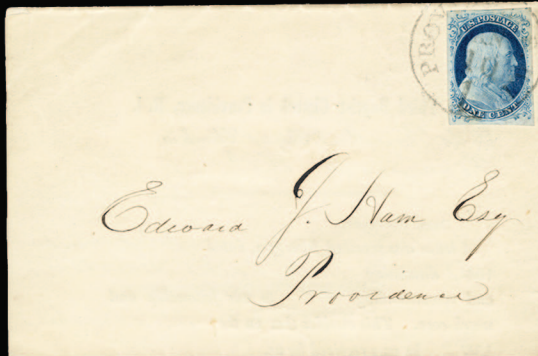 PROV
U.S. POSTAGE
ONE CENT
Edward J. Ham Esq
Providence